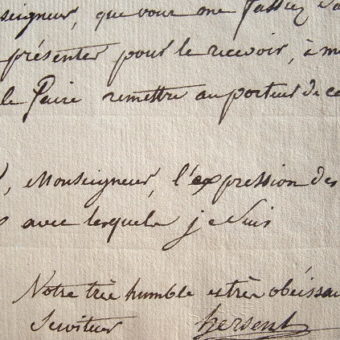 seigneur, que vous me fassiez
présenter pour le recevoir, à m
le faire remettre au porteur de ce
, Monseigneur, l'expression des
avec lesquels je suis
Votre très humble et très obéissa
Serviteur hersent